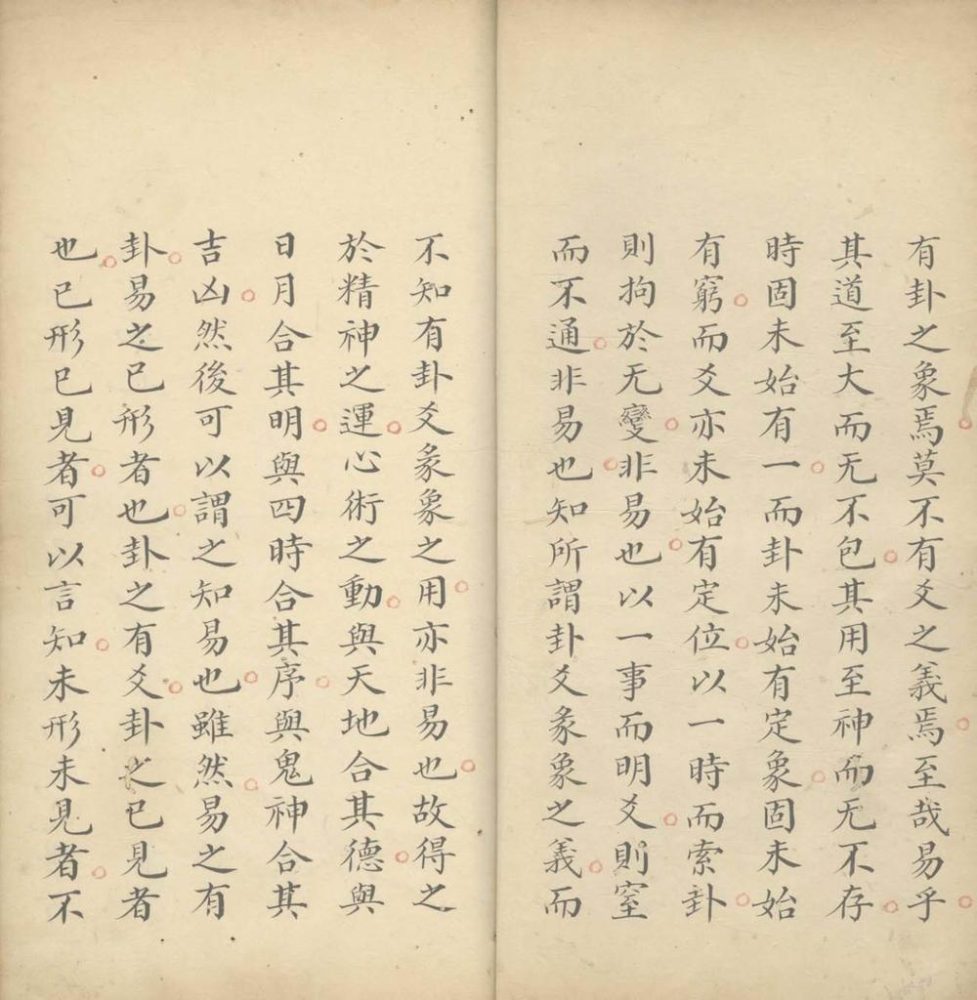 有卦之象焉莫不有爻之義焉至哉易乎
其道至大而无不包其用至神而无不存
時固未始有一而卦未始有定象固未始
有窮而爻亦未始有定位以一時而索卦
則拘於无變非易也以一事而明爻則窒
而不通非易也知所謂卦爻彖象之義而
不知有卦爻彖象之用亦非易也故得之
於精神之運心術之動與天地合其德與
日月合其明與四時合其序與鬼神合其
吉凶然後可以謂之知易也雖然易之有
卦易之已形者也卦之有爻卦之已見者
也已形已見者可以言知未形未見者不